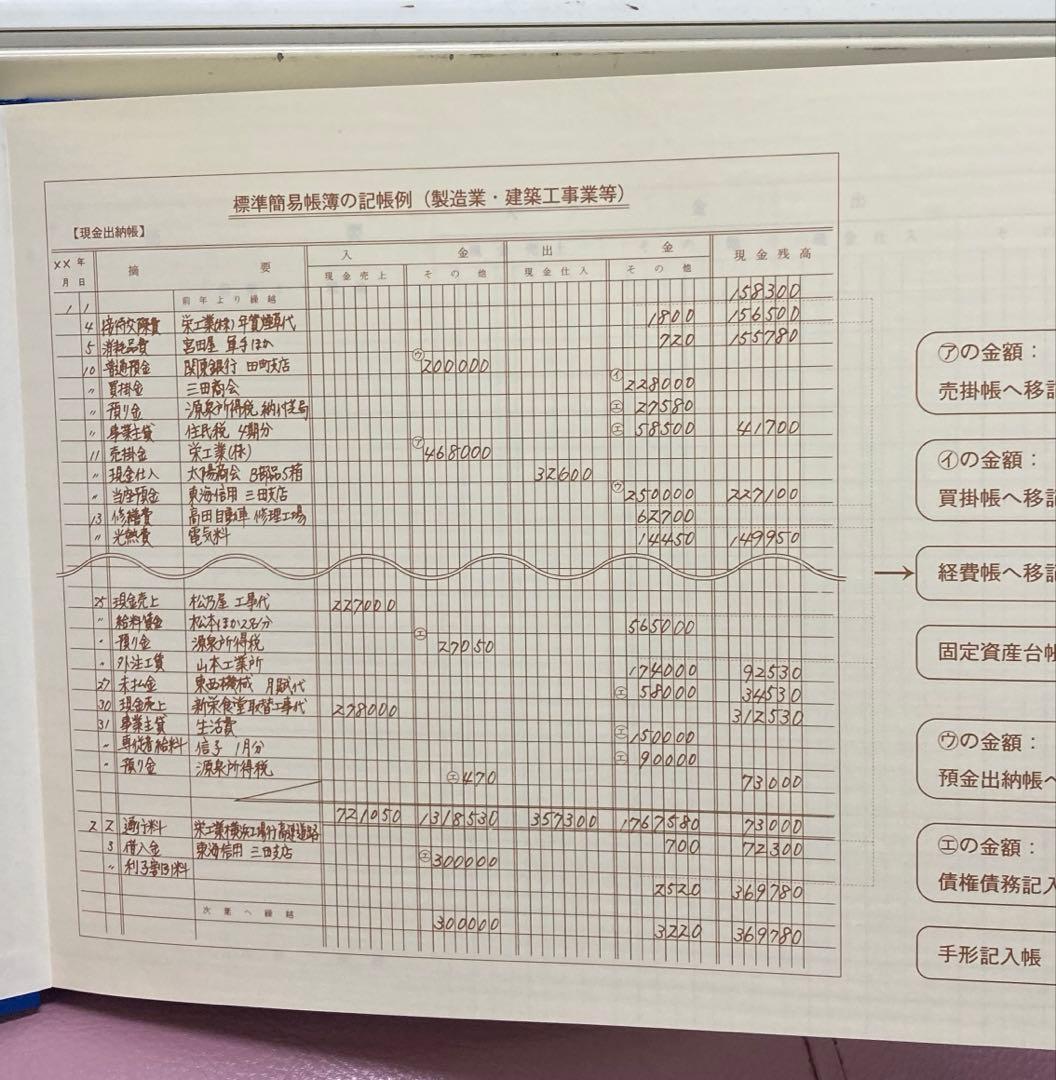 標準簡易帳簿の記帳例（製造業・建築工事業等）
【現金出納帳】
××年 摘要 入金 出金 現金残高
月日 現金売上 その他 現金仕入 その他
1 1 前年より繰越 158300
4 接待交際費 栄工業(株)年賀煙草代 1800 156500
5 消耗品費 宮田屋 軍手ほか 720 155780
10 普通預金 関東銀行 田町支店 ㋒200000
〃 買掛金 三田商会 ㋑228000
〃 預り金 源泉所得税 納付 ㋓27580
〃 事業主貸 住民税 4期分 ㋓58500 41700
11 売掛金 栄工業(株) ㋐468000
〃 現金仕入 太陽商会 B部品5箱 32600
〃 当座預金 東海信用 三田支店 ㋒250000 227100
13 修繕費 高田自動車 修理工場 62700
〃 光熱費 電気料 14450 149950
25 現金売上 松乃屋 工事代 227000
〃 給料賃金 松本ほか2名分 565000
〃 預り金 源泉所得税 ㋓27050
〃 外注工賃 山本工業所 174000 92530
27 未払金 東西機械 月賦代 ㋓58000 34530
30 現金売上 新栄食堂取替工事代 278000 312530
31 事業主貸 生活費 ㋓150000
〃 専従者給料 信子 1月分 ㋓90000
〃 預り金 源泉所得税 ㋓470 73000
721050 1318530 357300 1767580 73000
2 2 通行料 栄工業横浜工場行高速道路 700 72300
3 借入金 東海信用 三田支店 ㋓300000
〃 利子割引料 2520 369780
次葉へ繰越 300000 3220 369780
㋐の金額：
売掛帳へ移記
㋑の金額：
買掛帳へ移記
経費帳へ移記
固定資産台帳
㋒の金額：
預金出納帳へ
㋓の金額：
債権債務記入
手形記入帳